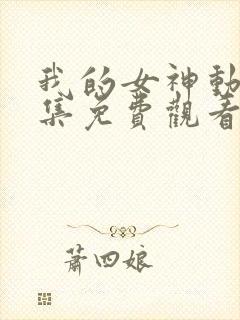 我的女神動
集免費觀看
蕭四娘